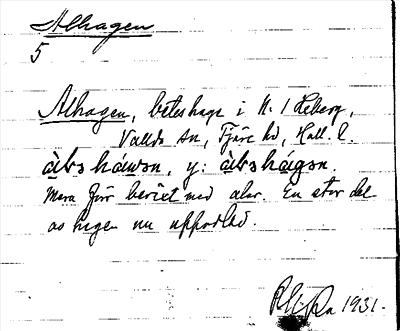 Alhagen
5
Alhagen, beteshage i N. / Heberg,
Vallda sn, Fjäre hd, Hall. l.
àl₂s háwən, y: àl₂shágən.
Mera förr beväxt med alar. En stor del
av hagen nu uppodlad.
1931.